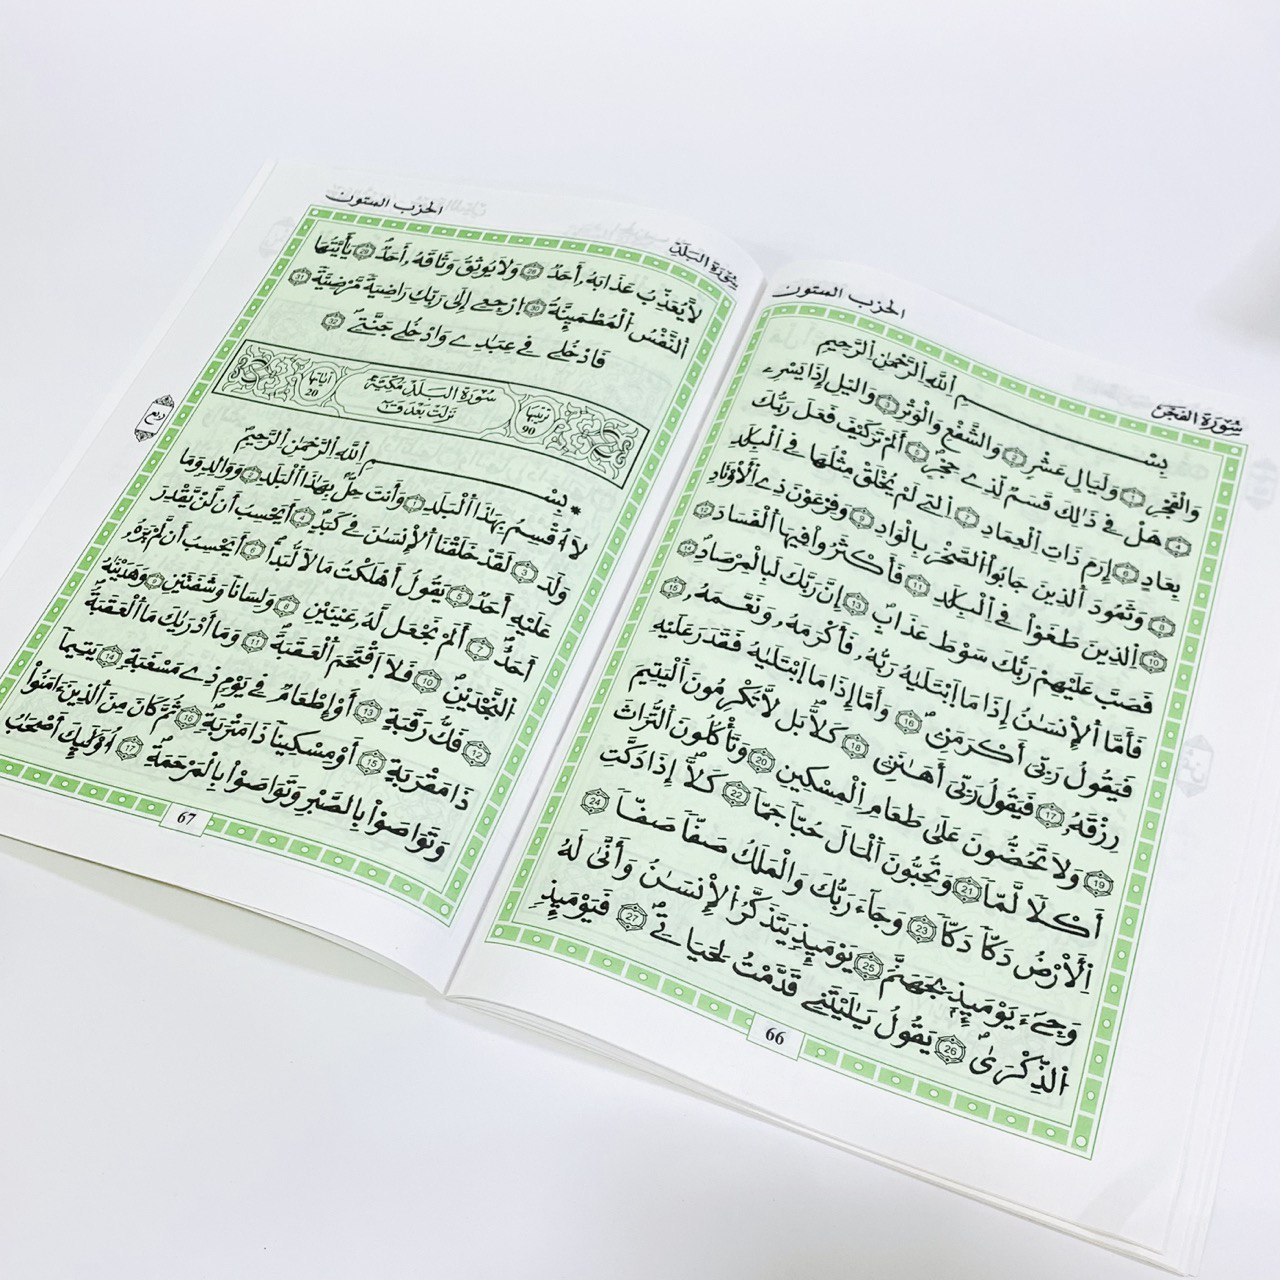 الحزب الستون سُورَةُ الفَجْرِ
بِسْمِ اِ۬للَّهِ اِ۬لرَّحْمَٰنِ اِ۬لرَّحِيمِ
وَالْفَجْرِ 1 وَلَيَالٍ عَشْرٍ 2 وَالشَّفْعِ وَالْوَتْرِ 3 وَاليْلِ إِذَا يَسْرِۦ
4 هَلْ فِي ذَٰلِكَ قَسَمٌ لِّذِے حِجْرٍ 5 اَلَمْ تَرَ كَيْفَ فَعَلَ رَبُّكَ
بِعَادٍ 6 اِرَمَ ذَاتِ اِ۬لْعِمَادِ 7 اِ۬لتِے لَمْ يُخْلَقْ مِثْلُهَا فِے اِ۬لْبِلَٰدِ
8 وَثَمُودَ اَ۬لذِينَ جَابُواْ اُ۬لصَّخْرَ بِالْوَادِۦ 9 وَفِرْعَوْنَ ذِے اِ۬لَاوْتَادِ
10 اِ۬لذِينَ طَغَوْاْ فِے اِ۬لْبِلَٰدِ 11 فَأَكْثَرُواْ فِيهَا اَ۬لْفَسَادَ 12
فَصَبَّ عَلَيْهِمْ رَبُّكَ سَوْطَ عَذَابٍ 13 اِنَّ رَبَّكَ لَبِالْمِرْصَادِ 14
فَأَمَّا اَ۬لِانسَٰنُ إِذَا مَا اَ۪بْتَلَيٰهُ رَبُّهُۥ فَأَكْرَمَهُۥ وَنَعَّمَهُۥ 15
فَيَقُولُ رَبِّيَ أَكْرَمَنِۦ 16 وَأَمَّا إِذَا مَا اَ۪بْتَلَيٰهُ فَقَدَرَ عَلَيْهِ
رِزْقَهُۥ 17 فَيَقُولُ رَبِّيَ أَهَٰنَنِۦ 18 كَلَّا بَل لَّا تُكْرِمُونَ اَ۬لْيَتِيمَ
19 وَلَا تَحُضُّونَ عَلَيٰ طَعَامِ اِ۬لْمِسْكِينِ 20 وَتَاكُلُونَ اَ۬لتُّرَاثَ
أَكْلًا لَّمًّا 21 وَتُحِبُّونَ اَ۬لْمَالَ حُبًّا جَمًّا 22 كَلَّا إِذَا دُكَّتِ
اِ۬لَارْضُ دَكًّا دَكًّا 23 وَجَآءَ رَبُّكَ وَالْمَلَكُ صَفًّا صَفًّا 24
وَجِاْےٓءَ يَوْمَئِذٍ بِجَهَنَّمَ 25 يَوْمَئِذٍ يَتَذَكَّرُ اُ۬لِانسَٰنُ وَأَنّٰىٰ لَهُ
اُ۬لذِّكْرٜىٰ 26 يَقُولُ يَٰلَيْتَنِے قَدَّمْتُ لِحَيَاتِے 27 فَيَوْمَئِذٍ
66
الحزب الستون سُورَةُ البَلَدِ
لَّا يُعَذِّبُ عَذَابَهُۥ أَحَدٌ 28 وَلَا يُوثِقُ وَثَاقَهُۥ أَحَدٌ 29 يَٰأَيَّتُهَا
اَ۬لنَّفْسُ اُ۬لْمُطْمَئِنَّةُ 30 اُ۪رْجِعِے إِلَىٰ رَبِّكِ رَاضِيَةً مَّرْضِيَّةً 31
فَادْخُلِے فِے عِبَٰدِے وَادْخُلِے جَنَّتِے 32
رتيبها 90 سُورَةُ البَلَدِ مَكِّيَّةٌ ءاياتها 20
نَزَلَتْ بَعْدَ قٓ
ربع
بِسْمِ اِ۬للَّهِ اِ۬لرَّحْمَٰنِ اِ۬لرَّحِيمِ
* لَا أُقْسِمُ بِهَٰذَا اَ۬لْبَلَدِ 1 وَأَنتَ حِلٌّ بِهَٰذَا اَ۬لْبَلَدِ 2 وَوَالِدٍ وَمَا
وَلَدَ 3 لَقَدْ خَلَقْنَا اَ۬لِانسَٰنَ فِے كَبَدٍ 4 اَيَحْسِبُ أَن لَّنْ يَّقْدِرَ
عَلَيْهِ أَحَدٌ 5 يَقُولُ أَهْلَكْتُ مَالًا لُّبَدًا 6 اَيَحْسِبُ أَن لَّمْ يَرَهُۥ
أَحَدٌ 7 اَلَمْ نَجْعَل لَّهُۥ عَيْنَيْنِ 8 وَلِسَانًا وَشَفَتَيْنِ 9 وَهَدَيْنَٰهُ
اُ۬لنَّجْدَيْنِ 10 فَلَا اَ۪قْتَحَمَ اَ۬لْعَقَبَةَ 11 وَمَا أَدْر۪يٰكَ مَا اَ۬لْعَقَبَةُ
12 فَكُّ رَقَبَةٍ 13 اَوِ اِطْعَٰمٌ فِے يَوْمٍ ذِے مَسْغَبَةٍ 14 يَتِيمًا
ذَا مَقْرَبَةٍ 15 اَوْ مِسْكِينًا ذَا مَتْرَبَةٍ 16 ثُمَّ كَانَ مِنَ اَ۬لذِينَ ءَامَنُواْ
وَتَوَاصَوْاْ بِالصَّبْرِ وَتَوَاصَوْاْ بِالْمَرْحَمَةِ 17 أُوْلَٰئِكَ أَصْحَٰبُ
67